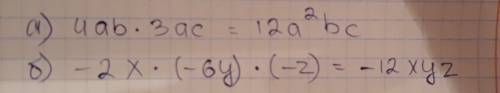 а) 4ab · 3ac = 12a²bc
б) -2x · (-6y) · (-z) = -12xyz